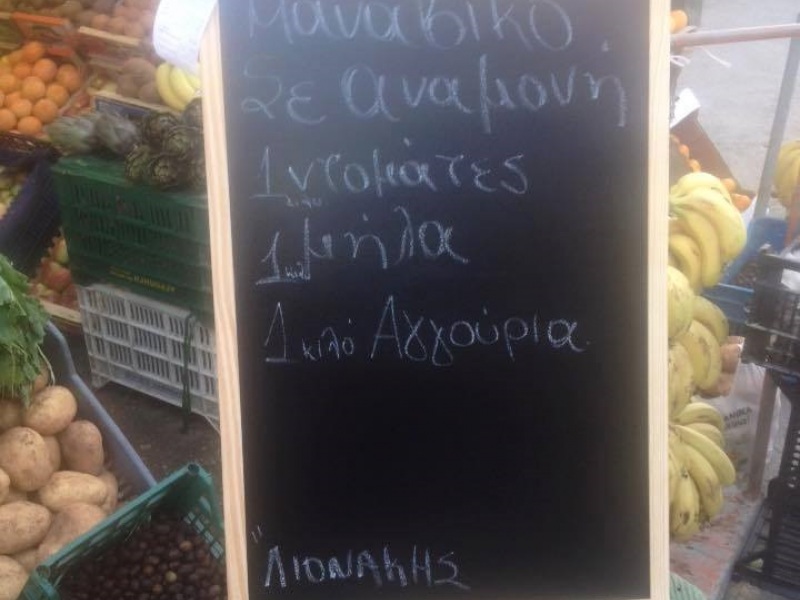 Μαναβικό
Σε αναμονή
1 κιλό ντομάτες
1 κιλό μήλα
1 κιλό Αγγούρια
"ΛΙΟΝΑΚΗΣ